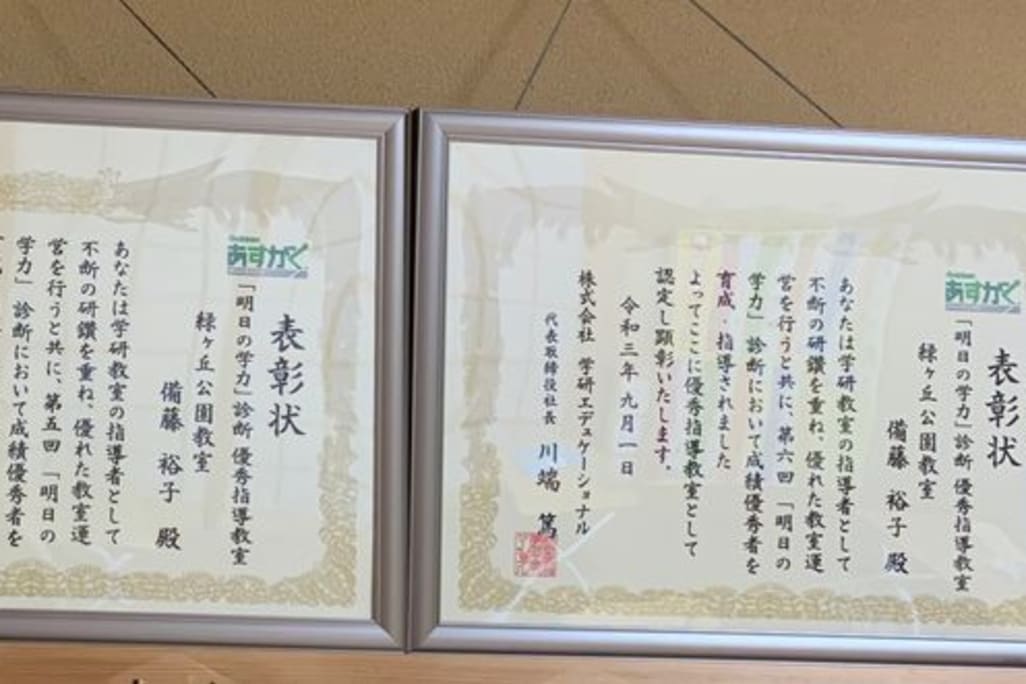 表彰状
あすかく
「明日の学力」診断 優秀指導教室
緑ヶ丘公園教室
備藤 裕子 殿
あなたは学研教室の指導者として
不断の研鑽を重ね、優れた教室運
営を行うと共に、第六回「明日の
学力」診断において成績優秀者を
育成・指導されました
よってここに優秀指導教室として
認定し顕彰いたします。
令和三年九月一日
株式会社 学研エデュケーショナル
代表取締役社長 川端 篤
表彰状
あすかく
「明日の学力」診断 優秀指導教室
緑ヶ丘公園教室
備藤 裕子 殿
あなたは学研教室の指導者として
不断の研鑽を重ね、優れた教室運
営を行うと共に、第五回「明日の
学力」診断において成績優秀者を